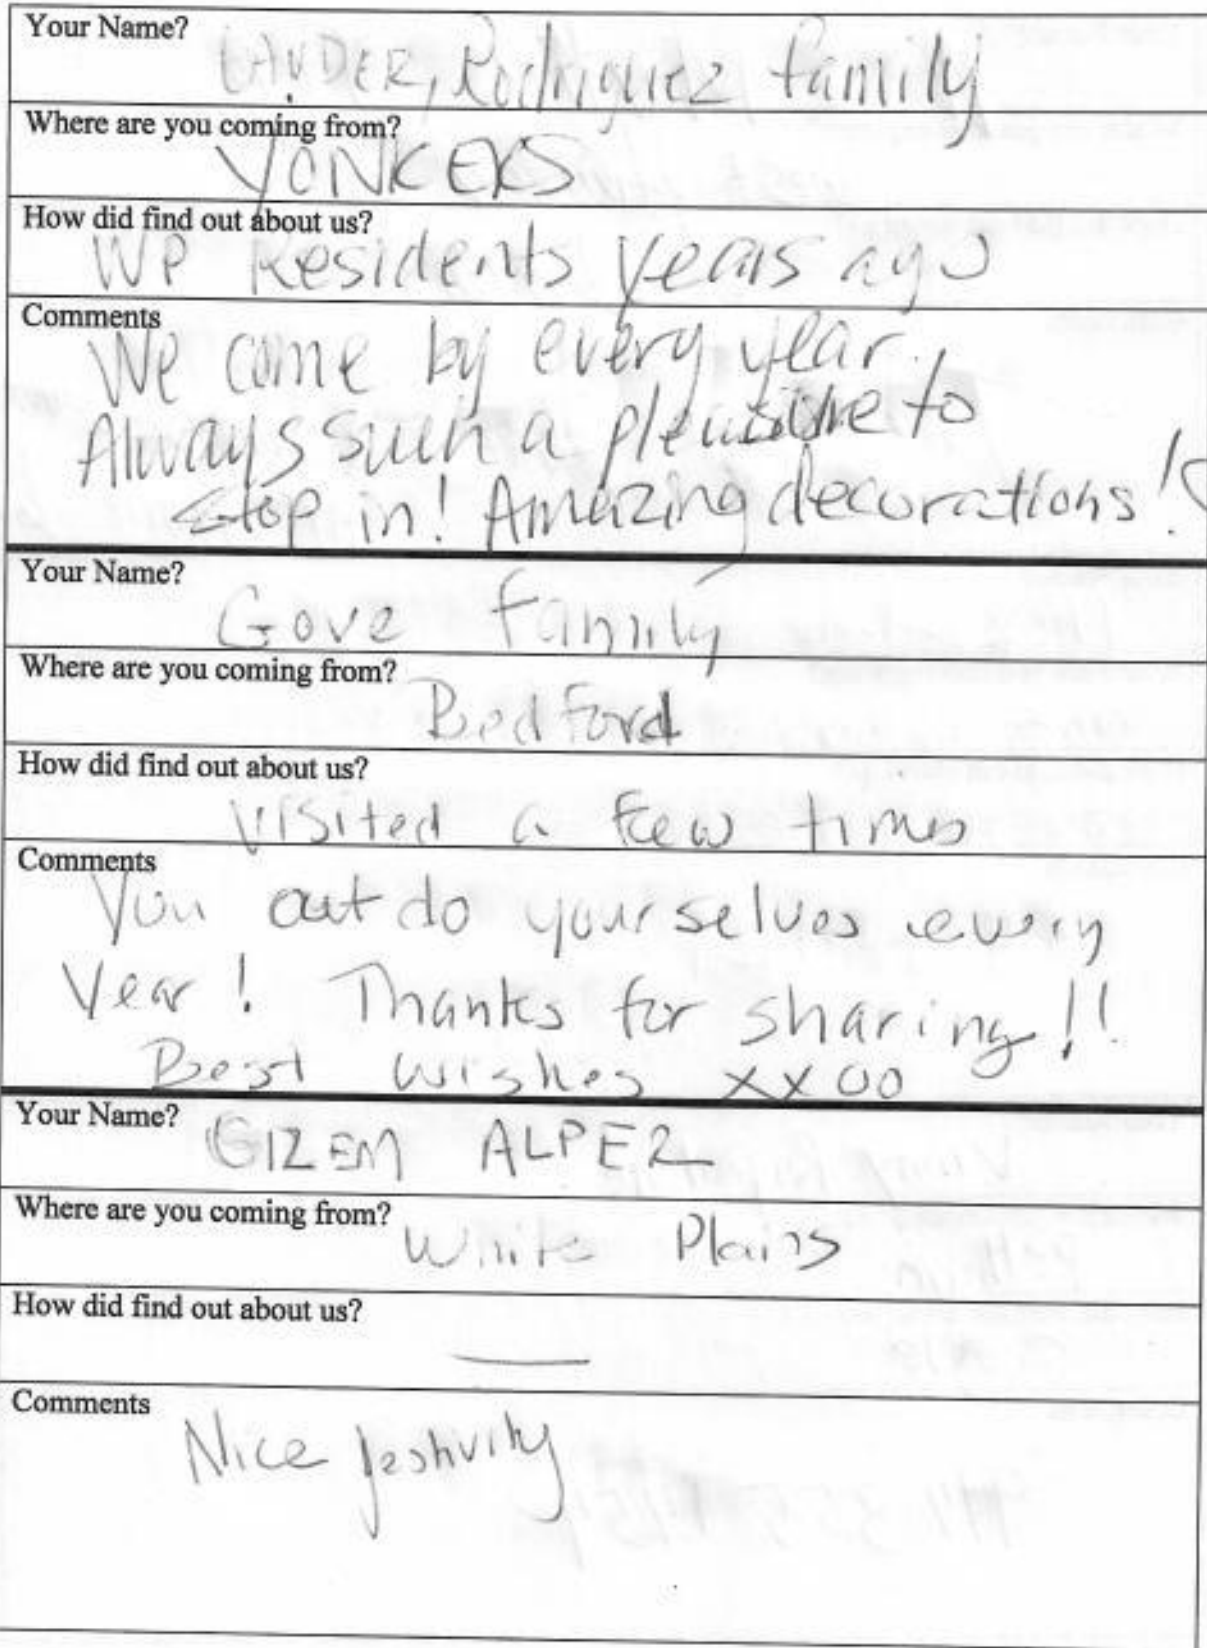 Your Name?
Rodriguez family
Where are you coming from?
YONKERS
How did find out about us?
WP Residents years ago
Comments
We come by every year.
Always such a pleasure to
stop in! Amazing decorations!
Your Name?
Gove family
Where are you coming from?
Bedford
How did find out about us?
Visited a few times
Comments
You outdo yourselves every
Year! Thanks for sharing!!
Best wishes xxoo
Your Name?
GIZEM ALPER
Where are you coming from?
White Plains
How did find out about us?
—
Comments
Nice festivity